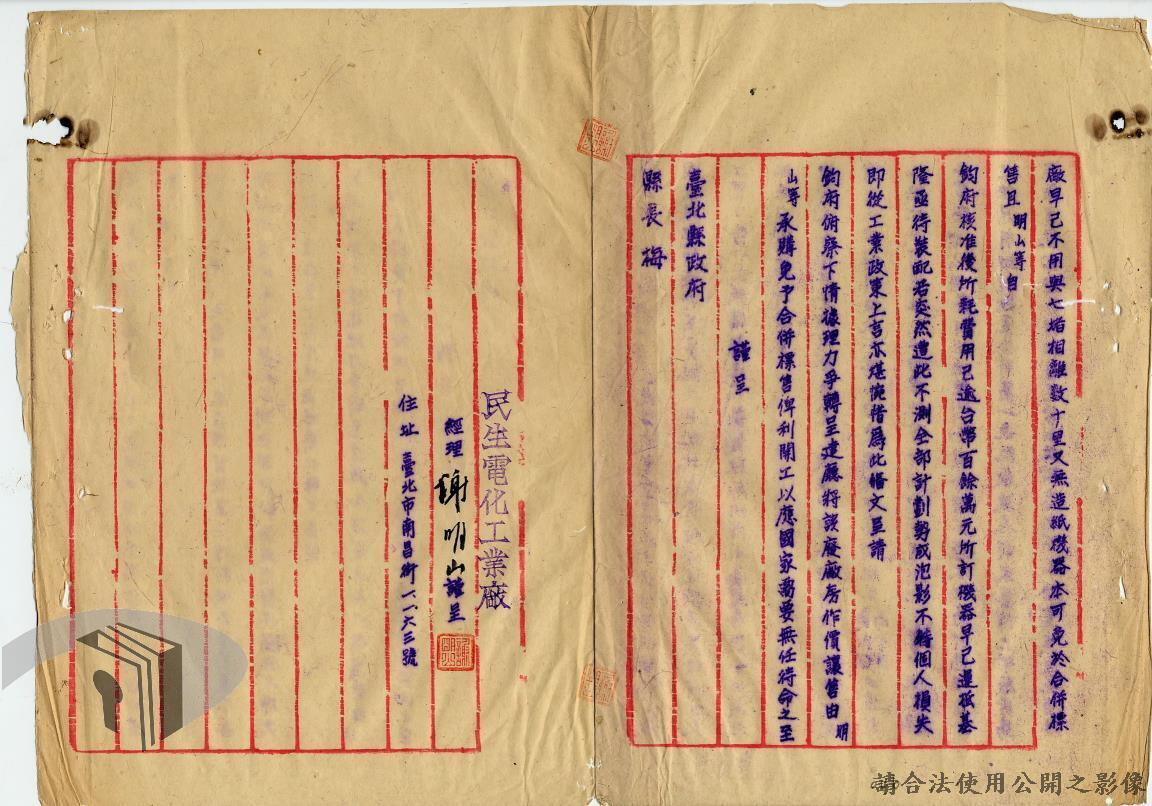 廠早已不用與七堵相離数十里又無造紙機器本可免於合併標
售且明山等自
鈞府核准後所耗費用已逾台幣百餘萬元所訂機器早已運抵基
隆亟待裝配若突然遭此不測全部計劃勢成泡影不特個人損失
即從工業政策上言亦堪惋惜爲此備文呈請
鈞府俯察下情據理力爭轉呈建廳將該廢廠房作價讓售由明
山等承購免予合併標售俾利開工以應國家需要無任待命之至
謹呈
臺北縣政府
縣長 梅
民生電化工業廠
經理 謝明山謹呈
住址 臺北市南昌街一一六三號
請合法使用公開之影像